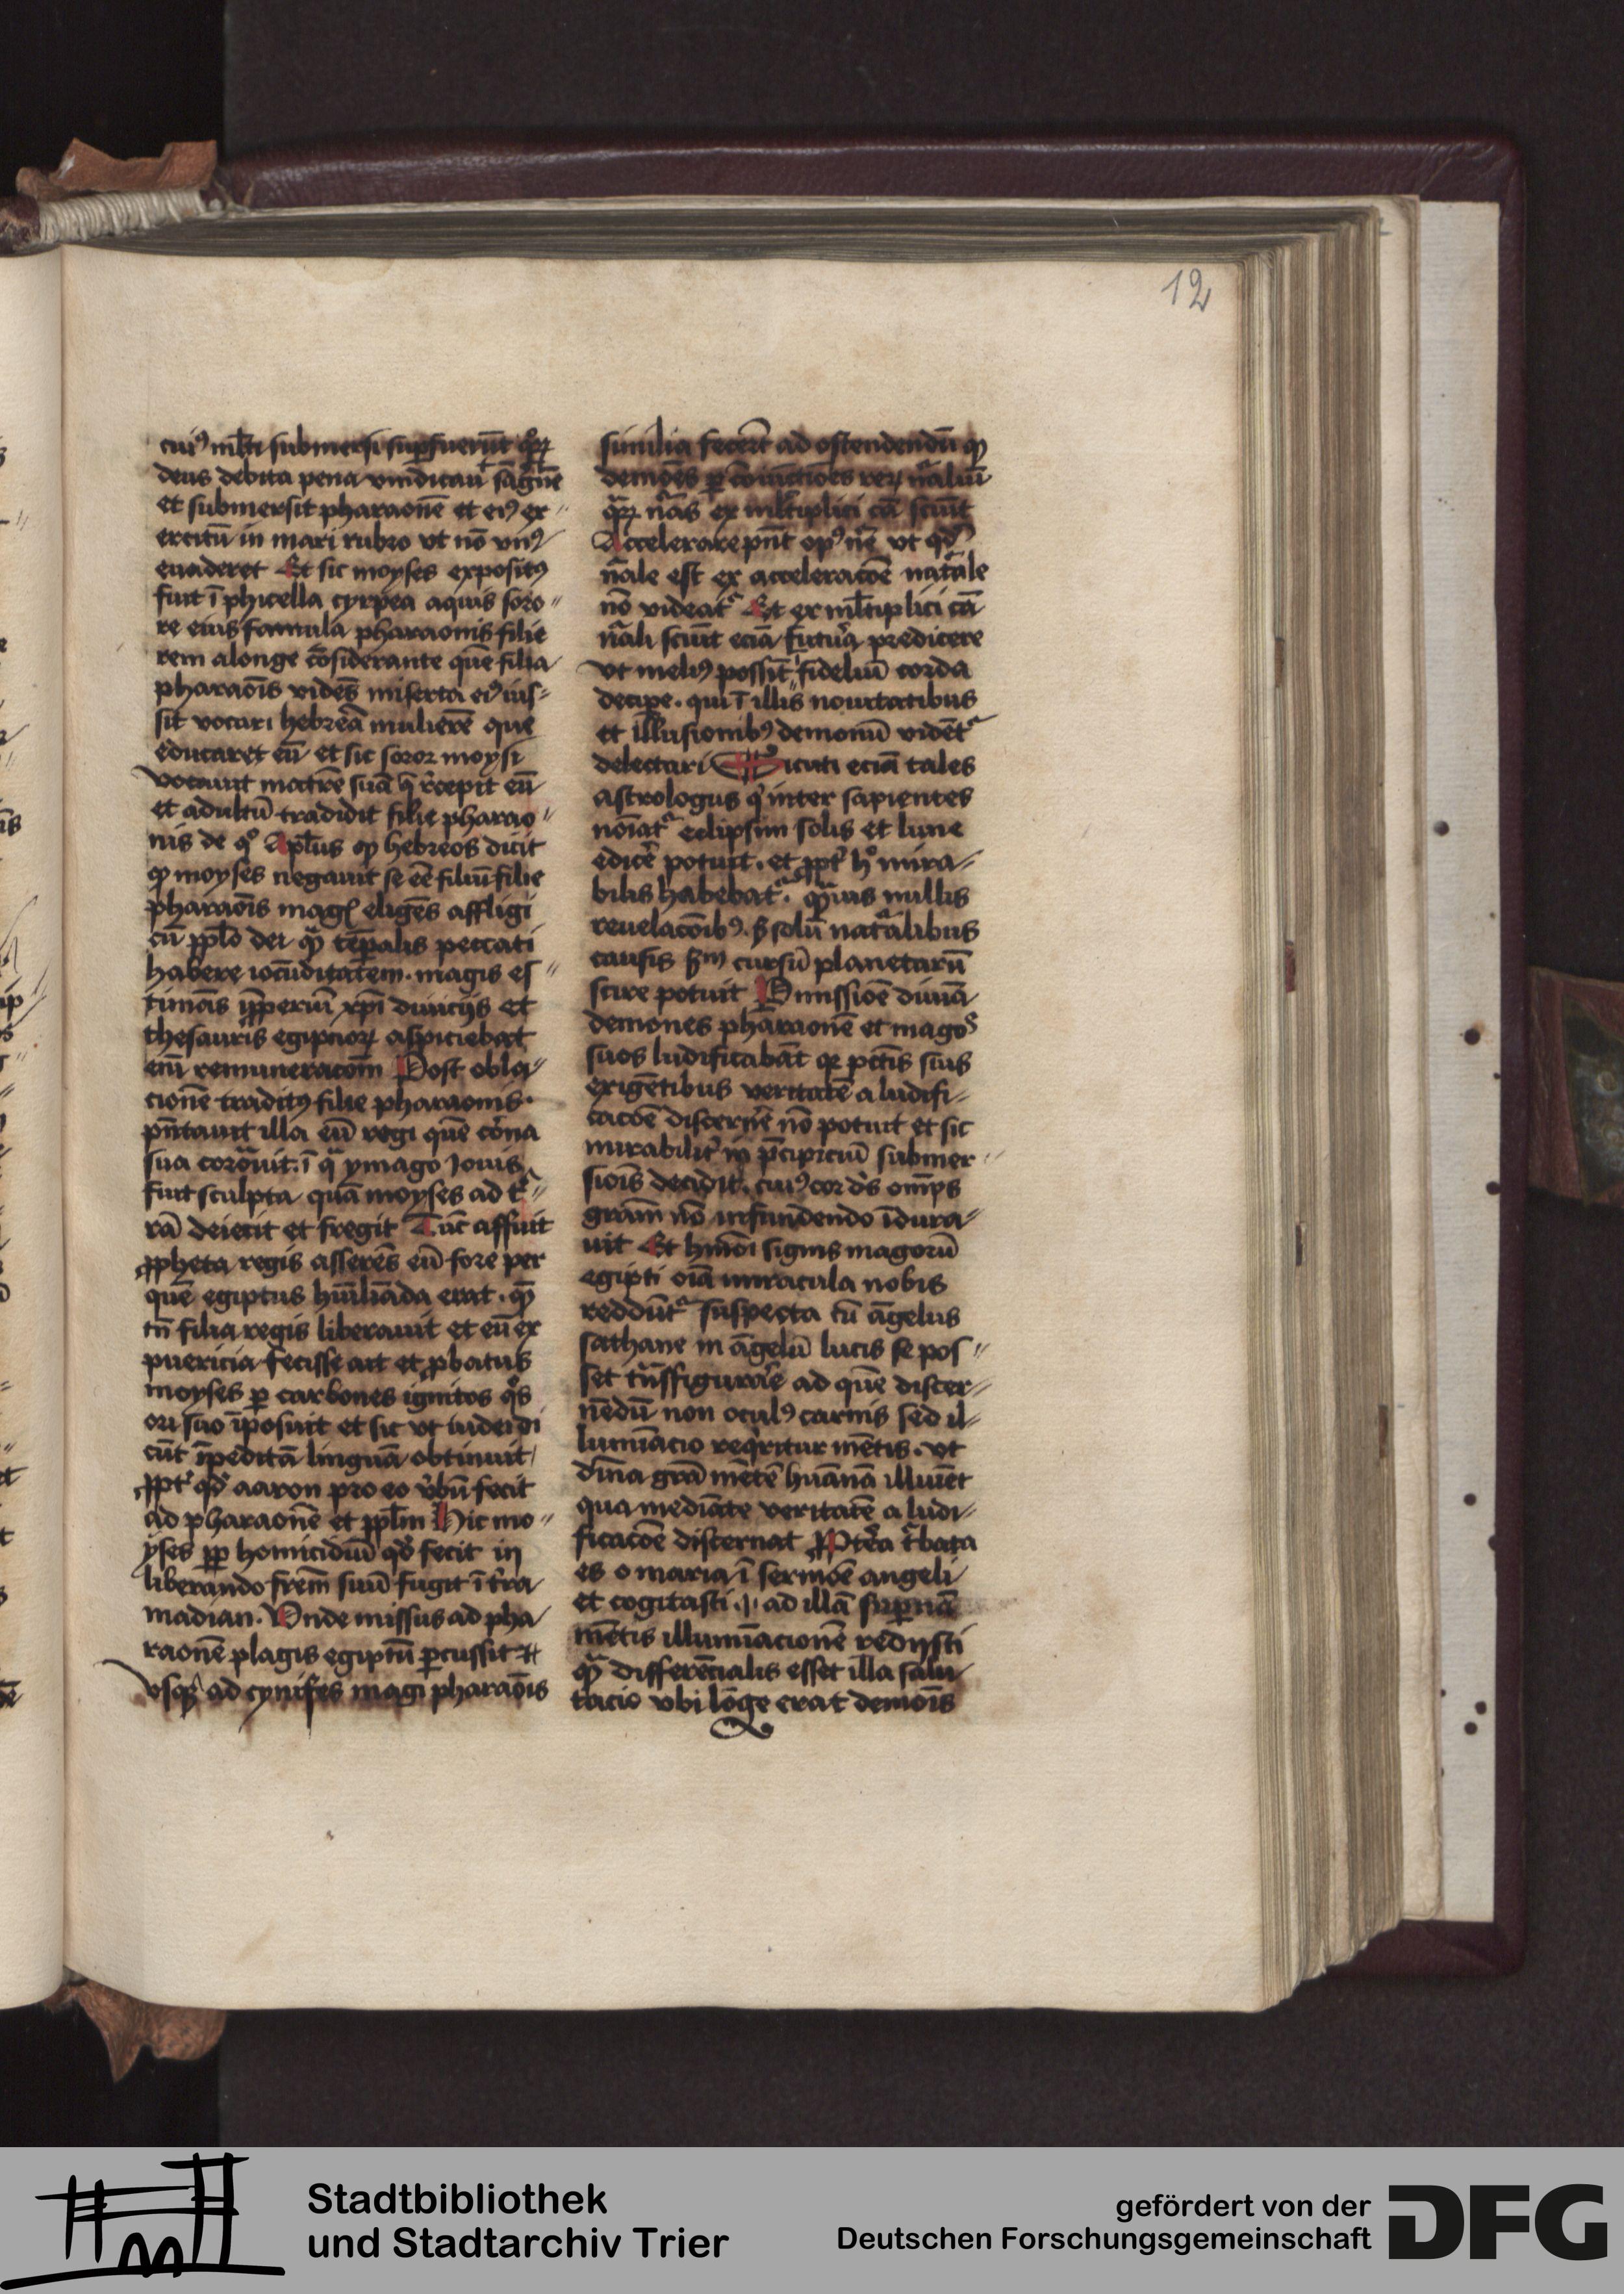 12
cuiꝰ ml̅ti submersi supfuerūt qᵒꝝ
deus debita pena vindicauᵗ sāgnē
et submersit pharaonē et eiꝰ ex-
ercitū in mari rubro vt nō vnꝰ
euaderet Et sic moyses expositꝰ
fuit ī phicella cyrpea aquis soro-
re eius famula pharaonis filie
rem alonge cōsiderante quē filia
pharaōis vidēs miserta eiꝰ ius-
sit vocari hebreā mulierē que
educaret eū et sic soror moysi
vocauit matrē suā q̄ recepit eū
et adultū tradidit filie pharao-
nis de qᵒ Apl̅us ꝙ hebreos dicit
ꝙ moyses negauit se eē filiū filie
pharaōis magꝭ eligēs affligi
cū pplō dei qᵃ̄ tēꝑalis peccati
habere iocūditatem. magis es-
timās īꝓperiū xp̅i diuicijs et
thesauris egipcioꝝ aspiciebat
em̄ remuneracōm Post obla-
cionē traditꝰ filie pharaonis.
pn̄tauit illa eū regi quē corōna
sua coronᵃuit. ī qᵃ ymago Iouis
fuit sculpta quā moyses ad tᵉ-
rā deiecit et fregit Tūc affuit
ꝓpheta regis asserēs eū fore per
quē egiptus hūiliāda erat. qᵃ̄
tn̄ filia regis liberauit et eū ex
puericia fecisse ait et ꝓbatus
moyses ꝑ carbones ignitos qᵒs
ori suo īposuit et sic vt iudei di
cūt īpeditā linguā obtinuit
ꝓpt̾ qd̾ aaron pro eo v̾bū fecit
ad pharaonē et pplm̄ Hic mo-
yses ꝓp homicidiū qd̾ fecit in
liberando frēm suū fugit ī t̾ra
madian. Vnde missus ad pha
raonē plagis egiptū ꝑcussit Et
vsqꝫ ad cynifes magi pharaōis
similia fecer̄t ad ostendendū ꝙ
demōes ꝑ cōiūctiōes reꝝ nᵃliū
qᵃꝝ nᵃs ex ml̅tiplici cā sciūt
Accelerare pn̄t opꝰ nᵉ̄ vt qd̾
nᵃ̄le est ex acceleracōe natᵃle
nō videatᵃ Et ex ml̅tiplici cā
nᵃ̄li sciūt eciā futura predicere
vt meliꝰ possīt fideliū corda
decipe. qui ī illis nouitatibus
et illusionibꝰ demonū vidētᵃ
delectari Sicuti eciā tales
astrologus qⁱ inter sapientes
noīatᵃ eclipsim solis et lune
edicē potuit. et ꝓpt̾ hᵒ mira-
bilis habebatᵃ. qᵃ̄uis nullis
reuelacōibꝰ. sꝫ solū natᵃlibus
causis scᵈᵐ cursū planetarū
scire potuit Pmissiōe diuīa
demones pharaonē et magos
suos ludificabāt qꝛ pctīs suis
exigētibus veritatē a ludifi-
cacōe discernē nō potuit et sic
mirabilit̾ in p̄cipiciū submer-
siōis decidit. cuiꝰ cor d̾s om̄ps
grām nō infundendo īdura-
uit Et hmōi signis magorū
egipti oīa miracula nobis
reddūtᵃ suspecta cū āgelus
sathane in āgelū lucis se pos-
set trāsfigurare ad quē discer-
nēdū non oculꝰ carnis sed il-
lumiācio reqⁱritur mētis. vt
diuīa grā mētē huāna illuīet
qua mediāte veritatē a ludi-
ficacōe discernat Ptᵉ̄a t̾bata
es o maria ī sermōe angeli
et cogitasti .i. ad illā supnā
mētis illumiācionē redijsti
qᵃ̄ differēcialis esset illa salu
tacio vbi lōge erat demōis
Stadtbibliothek
und Stadtarchiv Trier
gefördert von der
Deutschen Forschungsgemeinschaft
DFG